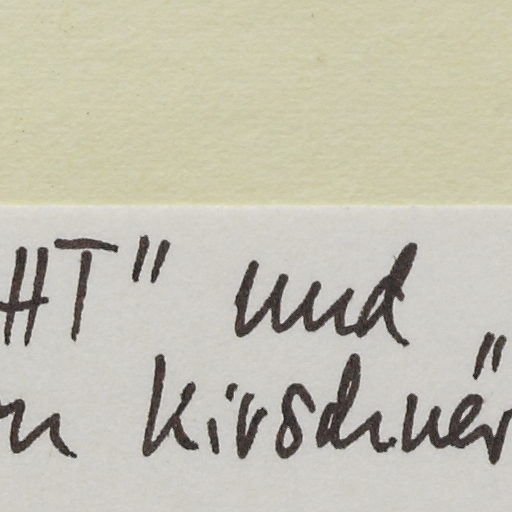 HT" und
n Kirschner